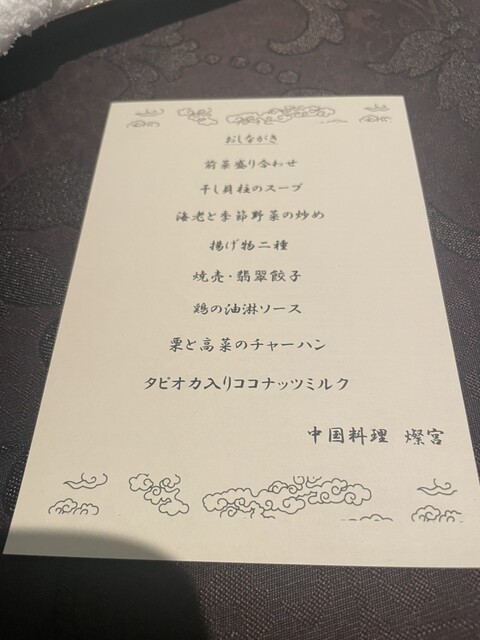 おしながき
前菜盛り合わせ
干し貝柱のスープ
海老と季節野菜の炒め
揚げ物二種
焼売・翡翠餃子
鶏の油淋ソース
栗と高菜のチャーハン
タピオカ入りココナッツミルク
中国料理 燦宮